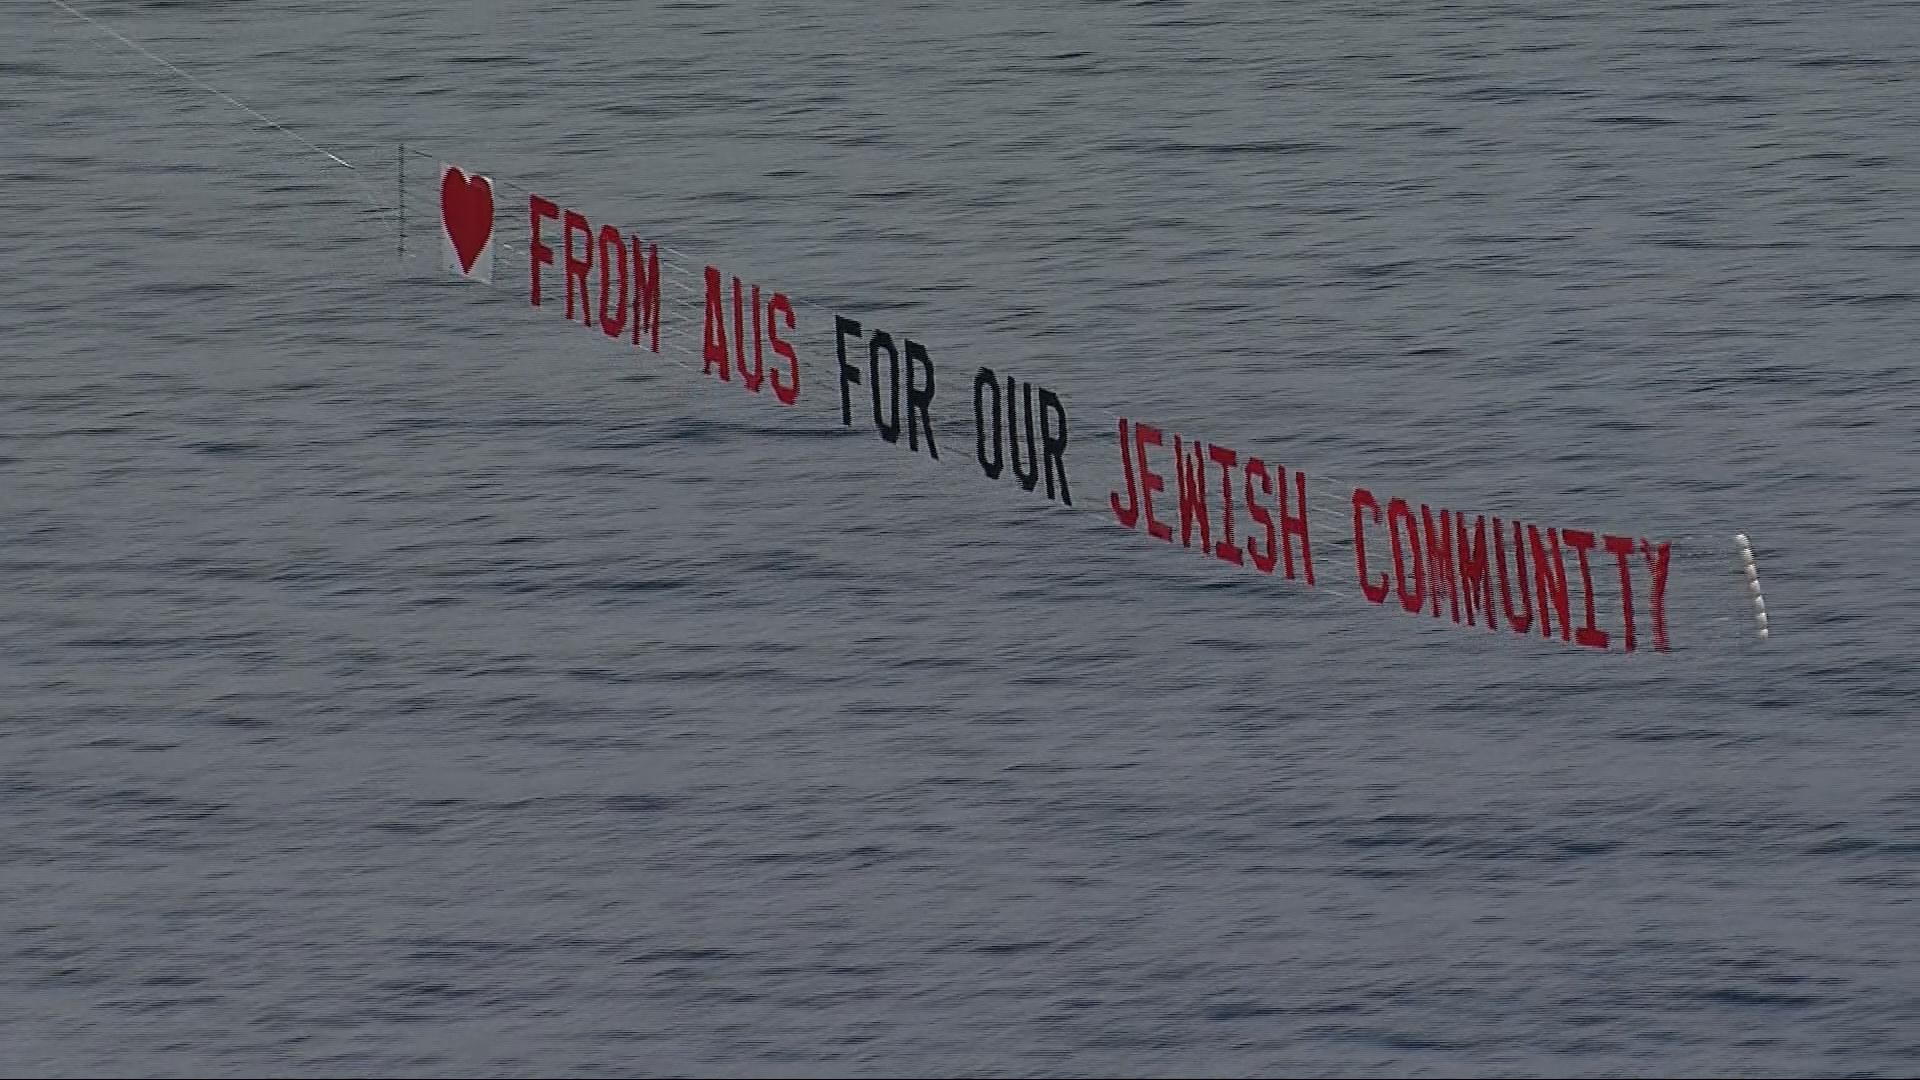 ♥ FROM AUS FOR OUR JEWISH COMMUNITY